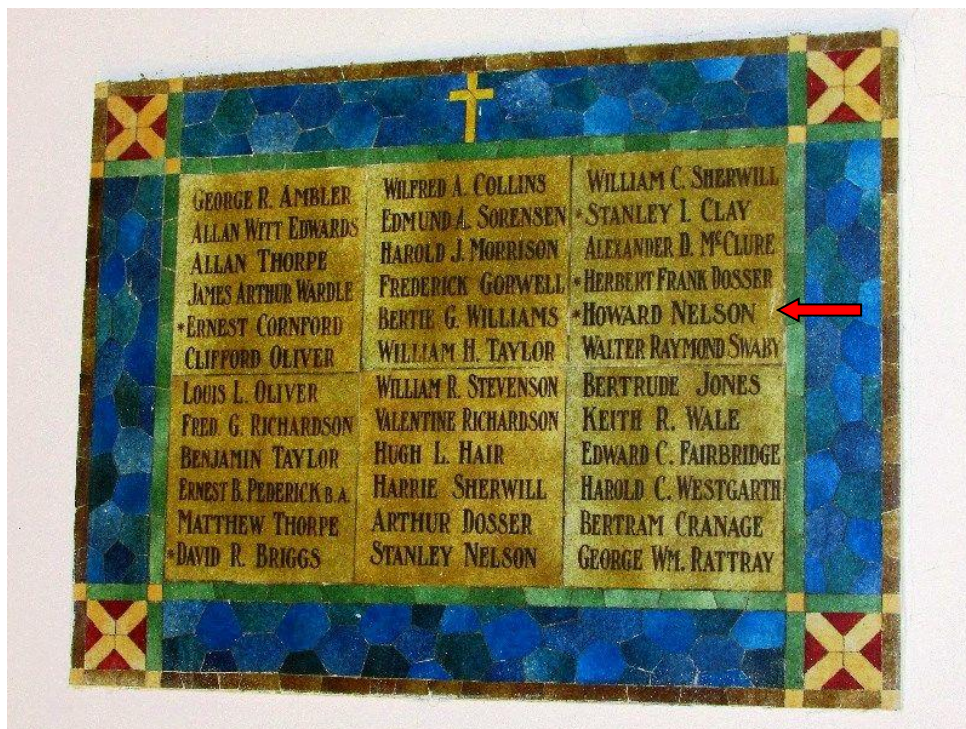 GEORGE R. AMBLER
ALLAN WITT EDWARDS
ALLAN THORPE
JAMES ARTHUR WARDLE
*ERNEST CORNFORD
CLIFFORD OLIVER
LOUIS L. OLIVER
FRED. G. RICHARDSON
BENJAMIN TAYLOR
ERNEST B. PEDERICK B.A.
MATTHEW THORPE
*DAVID R. BRIGGS
WILFRED A. COLLINS
EDMUND A. SORENSEN
HAROLD J. MORRISON
FREDERICK GORWELL
BERTIE G. WILLIAMS
WILLIAM H. TAYLOR
WILLIAM R. STEVENSON
VALENTINE RICHARDSON
HUGH L. HAIR
HARRIE SHERWILL
ARTHUR DOSSER
STANLEY NELSON
WILLIAM C. SHERWILL
*STANLEY I. CLAY
ALEXANDER D. McCLURE
*HERBERT FRANK DOSSER
*HOWARD NELSON
WALTER RAYMOND SWABY
BERTRUDE JONES
KEITH R. WALE
EDWARD C. FAIRBRIDGE
HAROLD C. WESTGARTH
BERTRAM CRANAGE
GEORGE WM. RATTRAY